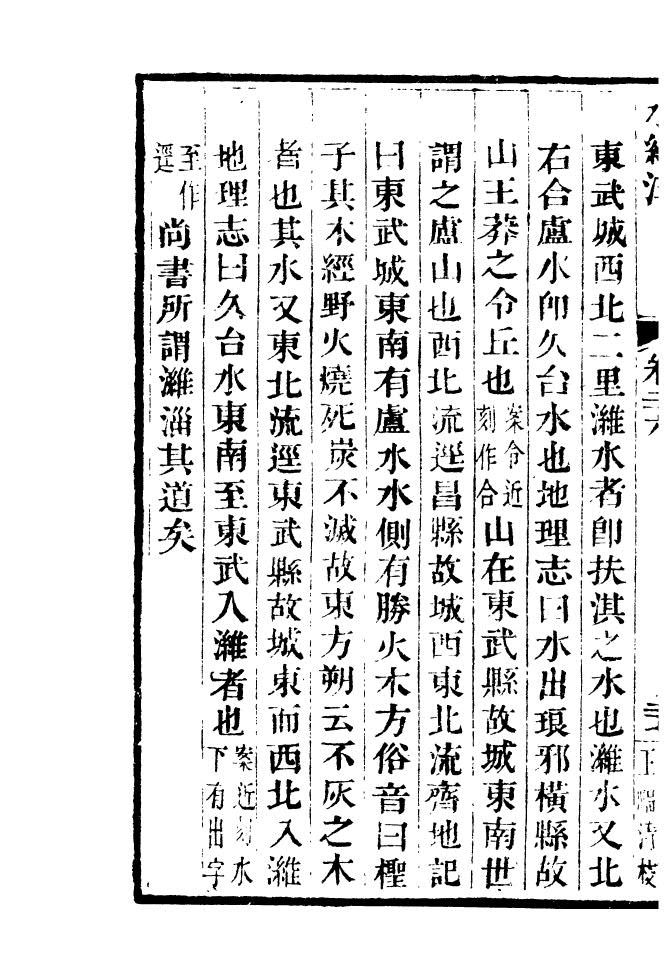 水經注
卷二
東武城西北二里濰水者卽扶淇之水也濰水又北
右合盧水卽久台水也地理志曰水出琅邪橫縣故
山王莽之令丘也案令近刻作合山在東武縣故城東南世
謂之盧山也西北流逕昌縣故城西東北流齊地記
曰東武城東南有盧水水側有勝火木方俗音曰檉
子其木經野火燒死炭不滅故東方朔云不灰之木
者也其水又東北流逕東武縣故城東而西北入濰
地理志曰久台水東南至東武入濰者也案近刻水下有出字
至作逕尚書所謂濰淄其道矣